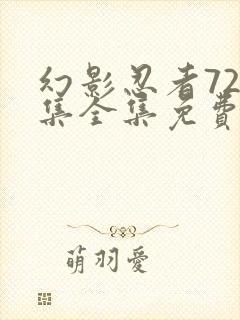 幻影忍者72
集全集免費
萌羽愛